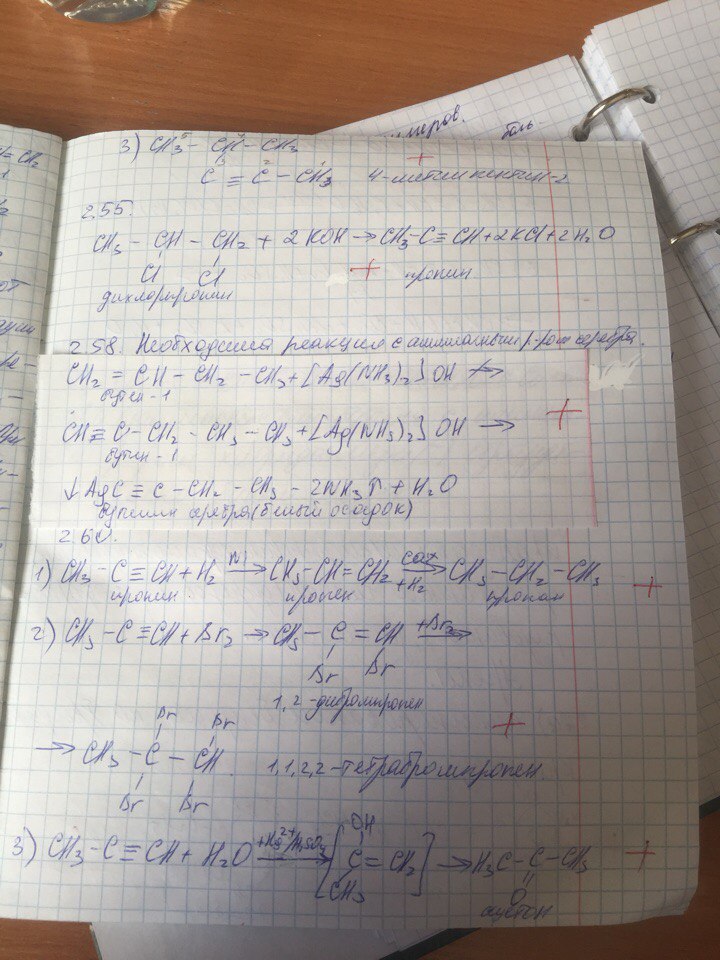 меров.
боль
3) CH₃⁵ – CH⁴ – CH₃
C³ ≡ C² – CH₃¹ 4-метилпентин-2
2.55.
CH₃ – CH – CH₂ + 2KOH → CH₃-C≡CH + 2KCl + 2H₂O
Cl Cl + пропин
дихлорпропин
2.58. Необходима реакция с аммиачным р-ром серебра.
CH₂ = CH – CH₂ – CH₃ + [Ag(NH₃)₂]OH ↛
бутен-1
CH ≡ C – CH₂ – CH₃ – CH₃ + [Ag(NH₃)₂]OH → +
бутин-1
↓AgC ≡ C – CH₂ – CH₃ – 2NH₃↑ + H₂O
серебра (белый осадок)
2.60.
1) CH₃ – C ≡ CH + H₂ →(Ni) CH₃ – CH = CH₂ →(cat, +H₂) CH₃ – CH₂ – CH₃ +
пропин пропен пропан
2) CH₃ – C ≡ CH + Br₂ → CH₃ – C = CH →(+Br₂)
Br Br
1,2-дибромпропен
Br Br +
→ CH₃ – C – CH 1,1,2,2-тетрабромпропен
Br Br
OH
3) CH₃ – C ≡ CH + H₂O →(+Hg²⁺/H₂SO₄) [C = CH₂] → H₃C – C – CH₃ +
CH₃ O
ацетон